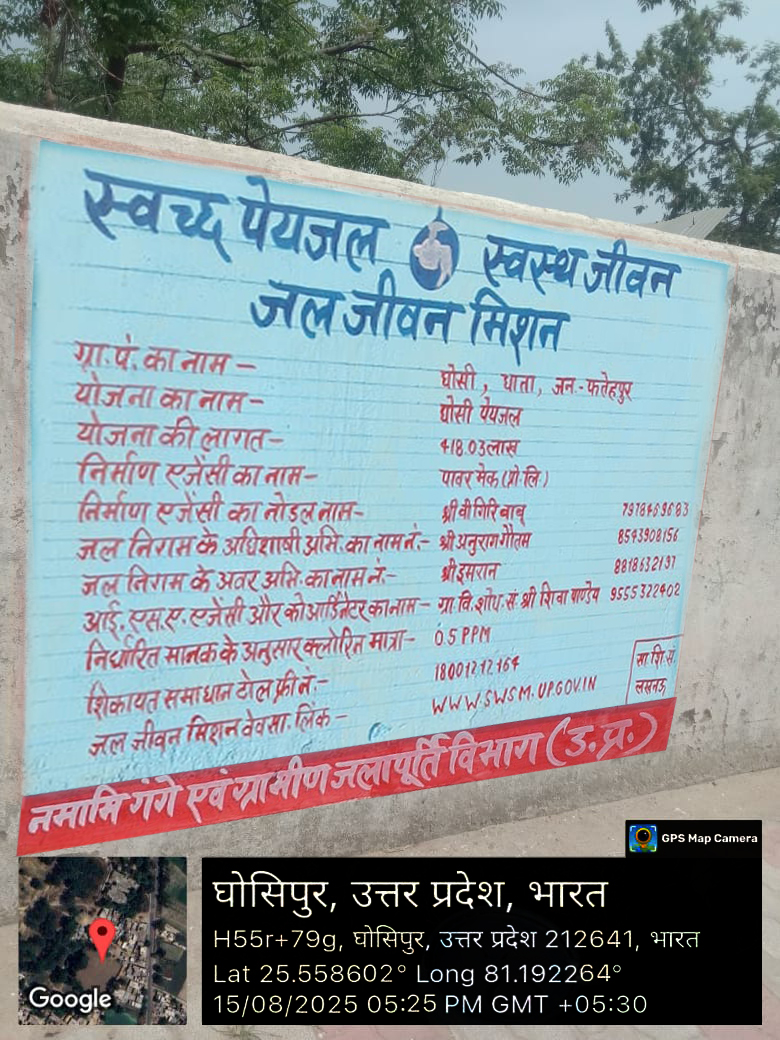 स्वच्छ पेयजल स्वस्थ जीवन
जल जीवन मिशन
ग्रा.पं. का नाम – घोसी, धाता, जन.- फतेहपुर
योजना का नाम – घोसी पेयजल
योजना की लागत – 418.03 लाख
निर्माण एजेंसी का नाम – पावर मेक (प्रो.लि.)
निर्माण एजेंसी का नोडल नाम – श्री वी गिरि बाबू 7978469683
जल निगम के अधिशाषी अभि. का नाम नं.- श्री अनुराग गौतम 8543908156
जल निगम के अवर अभि. का नाम नं.- श्री इमरान 8818632137
आई.एस.ए. एजेंसी और कोआर्डिनेटर का नाम – ग्रा.वि.शोध.सं. श्री शिवा पाण्डेय 9555322402
निर्धारित मानक के अनुसार क्लोरिन मात्रा - 0.5 PPM
शिकायत समाधान टोल फ्री नं.- 18001212164
जल जीवन मिशन वेवसा. लिंक – WWW.SWSM.UP.GOV.IN
सा.शि.सं.
लखनऊ
नमामि गंगे एवं ग्रामीण जलापूर्ति विभाग (उ.प्र.)
GPS Map Camera
घोसिपुर, उत्तर प्रदेश, भारत
H55r+79g, घोसिपुर, उत्तर प्रदेश 212641, भारत
Lat 25.558602° Long 81.192264°
15/08/2025 05:25 PM GMT +05:30
Google